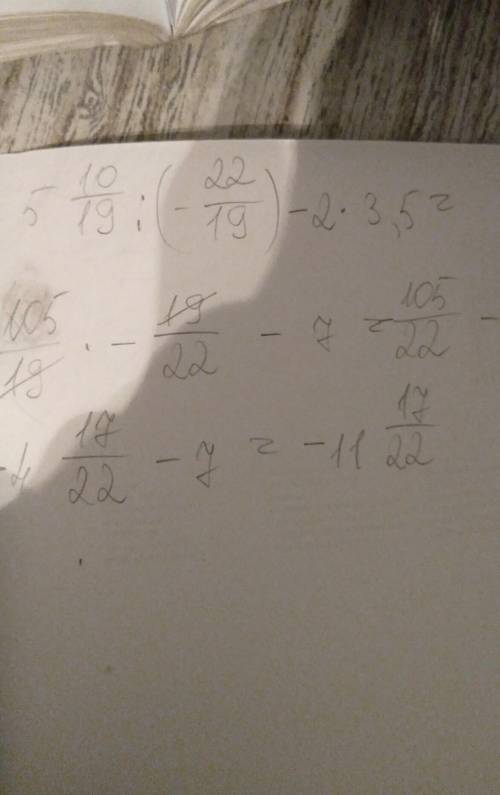 5 10/19 : (- 22/19) - 2 · 3,5 =
105/19 · - 19/22 - 7 = 105/22 -
-4 17/22 - 7 = -11 17/22